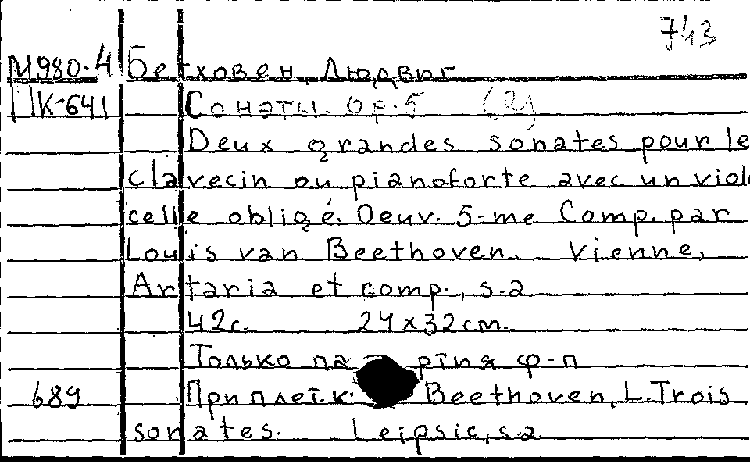 743
М980-4 Бетховен, Людвиг
ПК-641 Сонаты. op.5 (2)
Deux grandes sonates pour le
clavecin ou pianoforte avec un viol
celle obligé. Oeuv. 5-me Comp. par
Louis van Beethoven. Vienne,
Artaria et comp., s.a
42с. 24x32см.
Только па ртия ф-п
689 Приплет.к: Beethoven, L. Trois
sonates. Leipsic, s.a